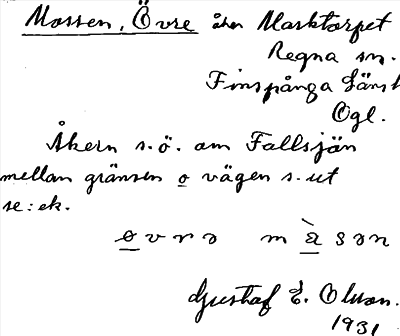 Mossen, Övre åker Marktorpet
Regna sn.
Finspånga länst
Ögl.
Åkern s.ö. om Fallsjön
mellan gränsen o vägen s. ut
se: ek.
øvrə màsən
Gustaf E. Olson.
1931